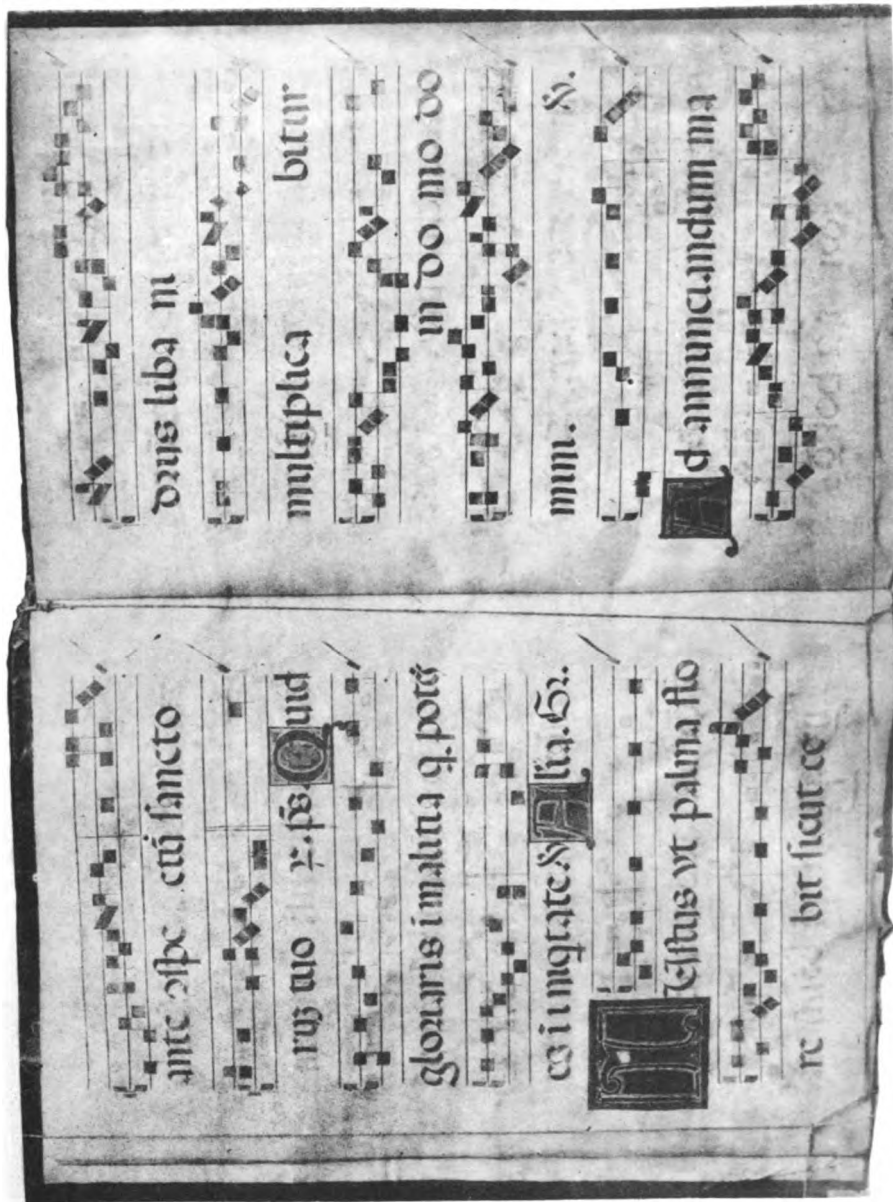 ante ↄspc̄ ctũ sancto
rũ tuo ꝝ. p̄s. Quid
gloriaris ĩ malitia q̃ potẽ
es ĩ iniq̃tate & Alia. Gr.
IUstus vt palma flo
re bit sicut ce
drus liba ni
multiplica bitur
in do mo do
mini. ℣.
Ad annunciandum ma